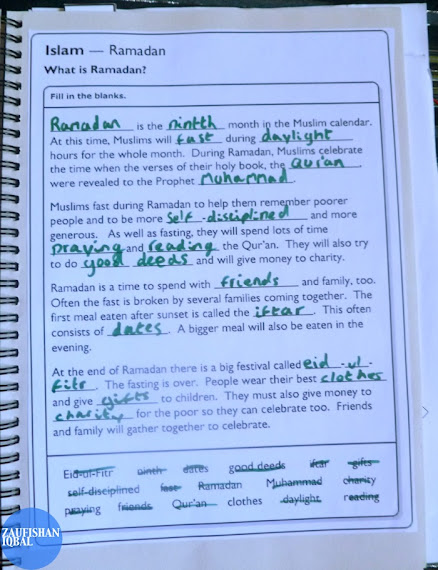 Islam — Ramadan
What is Ramadan?
Fill in the blanks.
Ramadan is the ninth month in the Muslim calendar.
At this time, Muslims will fast during daylight
hours for the whole month. During Ramadan, Muslims celebrate
the time when the verses of their holy book, the Qur'an
were revealed to the Prophet Muhammad.
Muslims fast during Ramadan to help them remember poorer
people and to be more self-disciplined and more
generous. As well as fasting, they will spend lots of time
praying and reading the Qur'an. They will also try
to do good deeds and will give money to charity.
Ramadan is a time to spend with friends and family, too.
Often the fast is broken by several families coming together. The
first meal eaten after sunset is called the iftar. This often
consists of dates. A bigger meal will also be eaten in the
evening.
At the end of Ramadan there is a big festival called eid-ul-
fitr. The fasting is over. People wear their best clothes
and give gifts to children. They must also give money to
charity for the poor so they can celebrate too. Friends
and family will gather together to celebrate.
Eid-ul-Fitr ninth dates good deeds iftar gifts
self-disciplined fast Ramadan Muhammad charity
praying friends Qur'an clothes daylight reading
ZAUFISHAN
IQBAL